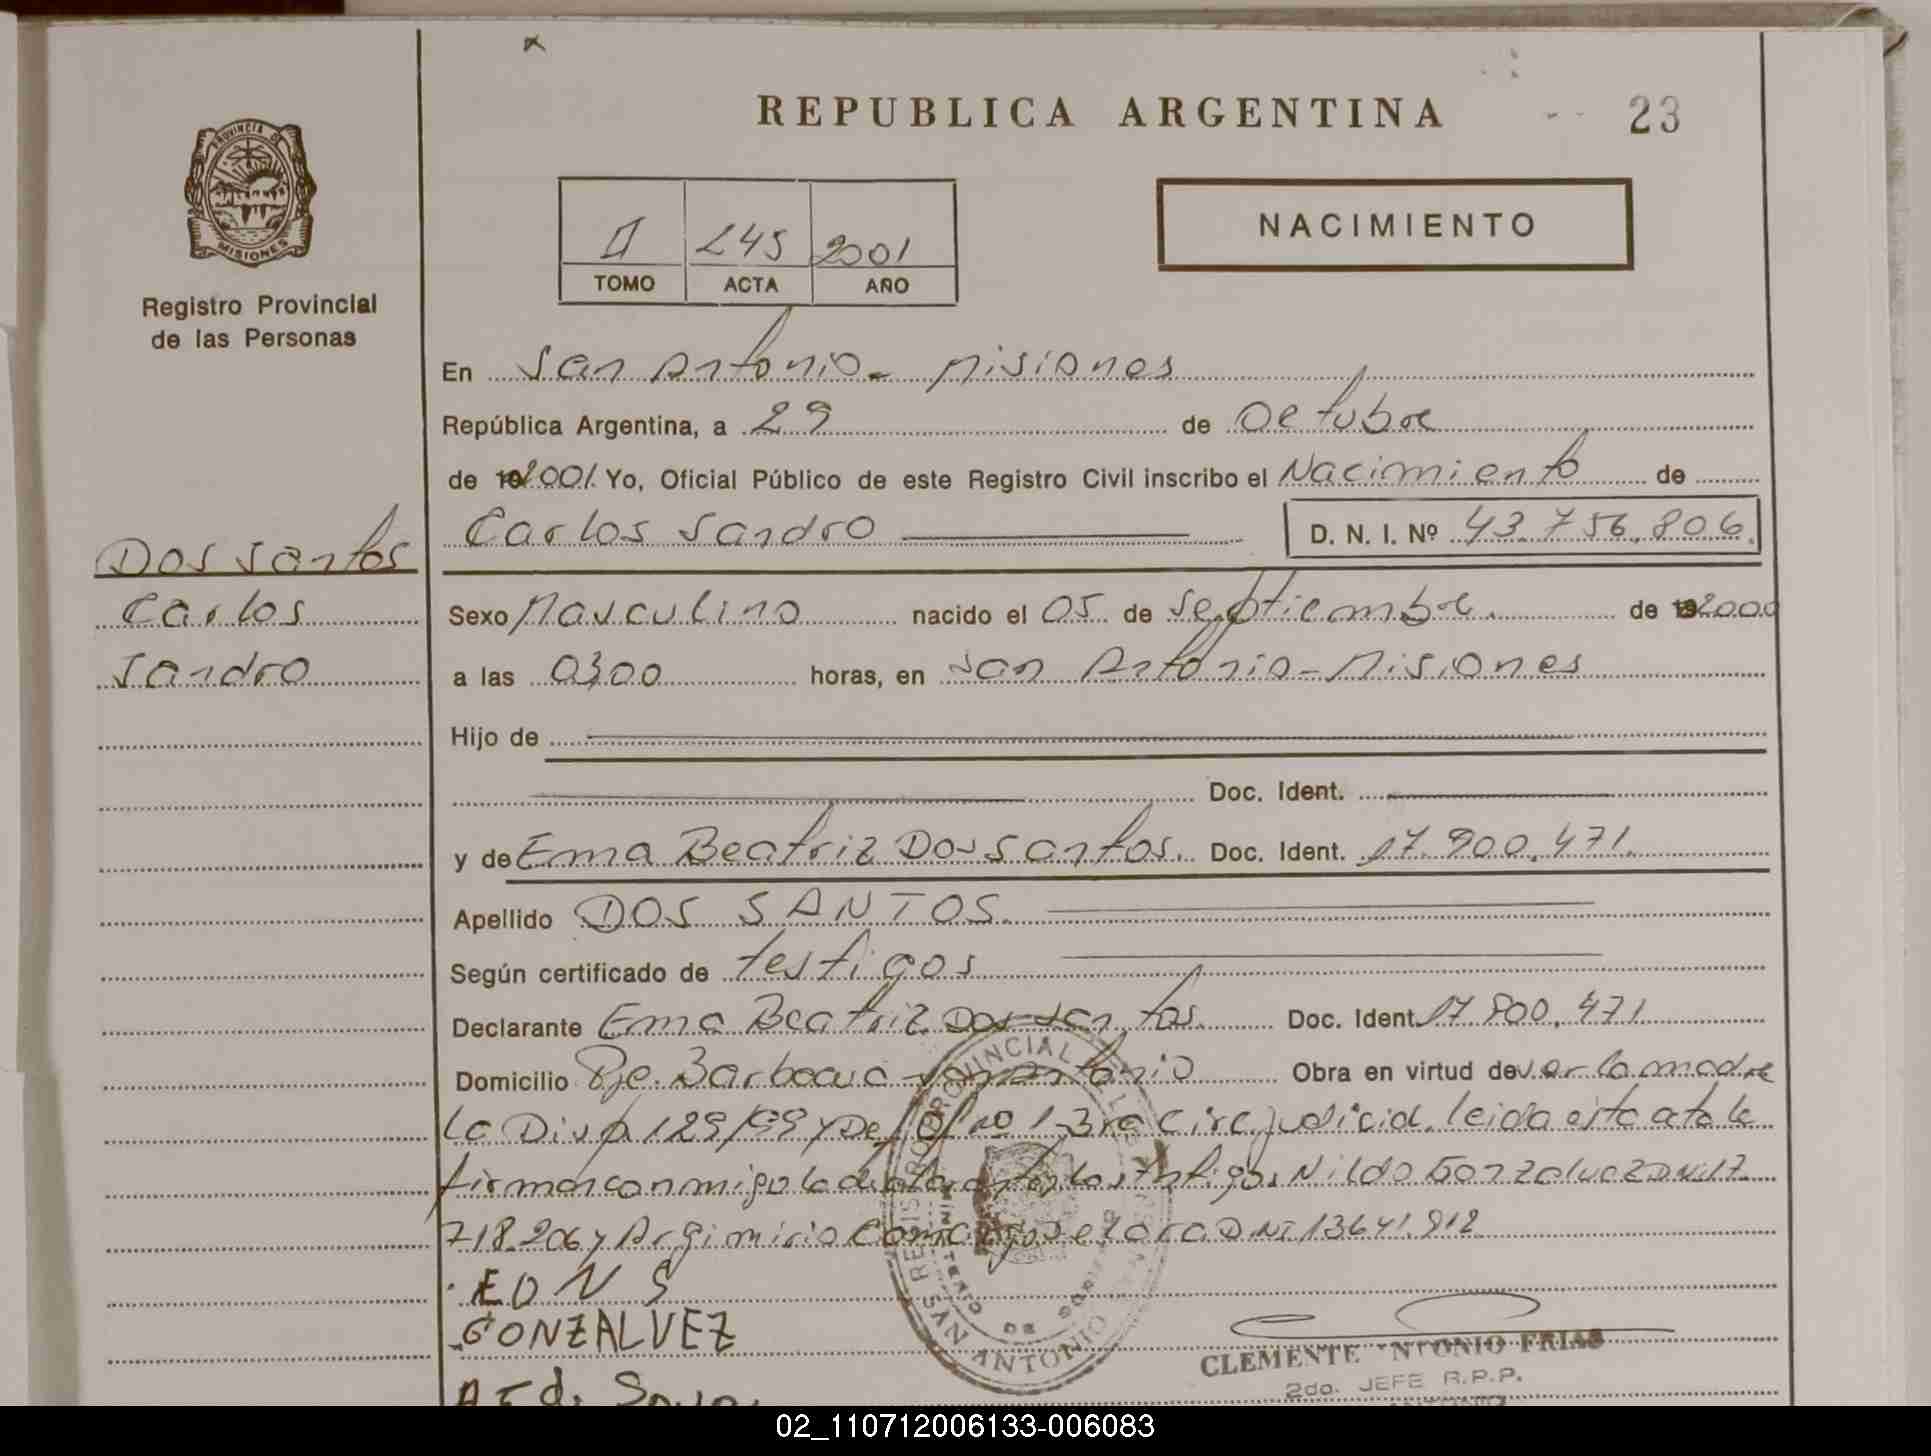 REPUBLICA ARGENTINA
23
PROVINCIA DE
MISIONES
Registro Provincial
de las Personas
II 245 2001
TOMO ACTA AÑO
NACIMIENTO
En San Antonio - Misiones
República Argentina, a 29 de Octubre
de 2001. Yo, Oficial Público de este Registro Civil inscribo el Nacimiento de
Carlos Sandro D. N. I. Nº 43.756.806.
Dos Santos
Carlos
Sandro
Sexo Masculino nacido el 05 de Septiembre. de 2000
a las 03,00 horas, en San Antonio - Misiones
Hijo de
Doc. Ident.
y de Ema Beatriz Dos Santos. Doc. Ident. 17.900.471.
Apellido DOS SANTOS.
Según certificado de testigos
Declarante Ema Beatriz Dos Santos. Doc. Ident. 17.900.471
Domicilio Pje. San Antonio Obra en virtud de ser la madre
la Disp 129/99 y Def Of nº 1-3ra Circ judicial. leida esta acta la
firman conmigo la declarante y los testigos Nildo Gonzalvez DNI 17
718.206 y Argimirio DNI 13641.912
EDNS
GONZALVEZ
CLEMENTE ANTONIO FRIAS
2do. JEFE R.P.P.
02_110712006133-006083